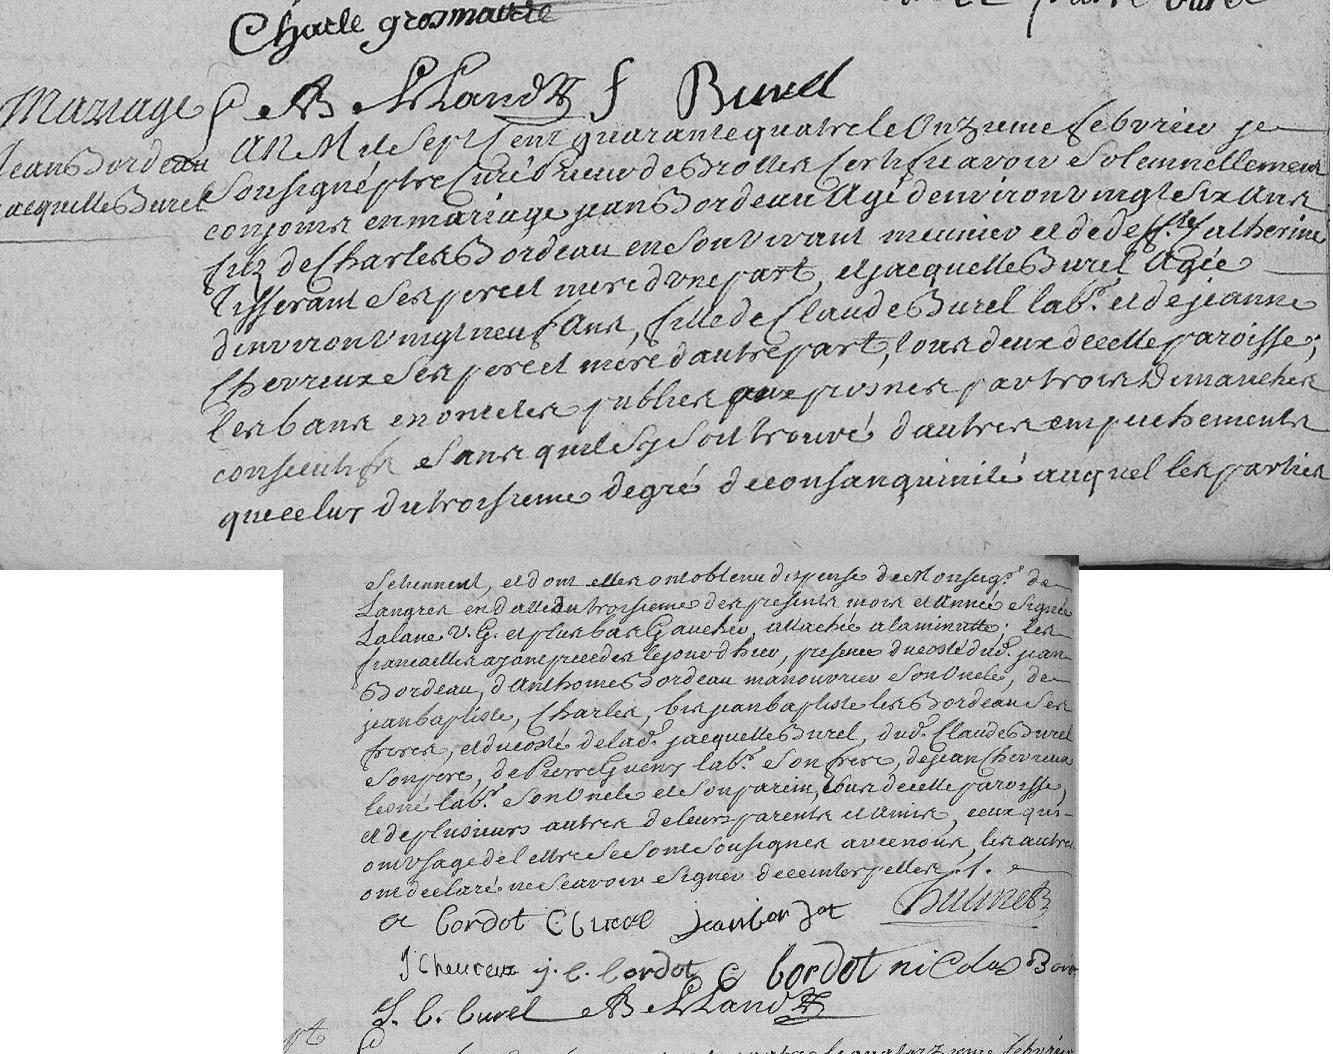 Charle grosmaitre
AB Rolland f Burel
Mariage
Jean Bordeau
jacquelle Burel
L'AN Mil Sept Cent quarante quatre le Onzieme febvrier je
Soussigné ptre Curé Prieur de Brotter Certifie avoir Solennellement
conjoint en mariage jean Bordeau Agé denviron vingt Six Ans
filz de Charles Bordeau en Son vivant meunier et de deffte Catherine
Tisserant Ses pere et mere dune part, et jacquelle Burel Agée
d'environ vingt neuf Ans, fille de Claude Burel labr. et de jeanne
Chevreux Ses pere et mere dautre part, tous deux de cette paroisse;
les bans en ont etes publies aux prosnes par trois Dimanches
consecutifs Sans quil Sy Soit trouvé d'autres empechements
que celuy du troisieme degré de consanguinité auquel les parties
Se tiennent, et dont elles ont obtenu dispense de Monseigr. de
Langres en datte du troisieme des presents mois et Année Signée
Lalane V.G. et plus bas Gaucher, attaché a la minutte; les
fiancailles ayant precedes le jour d'hier, presence du costé dud. jean
Bordeau, d'Anthoine Bordeau manouvrier Son Oncle, de
jean baptiste, Charles, bis jean baptiste les Bordeau Ses
freres, et du costé de lad. jacquelle Burel, dud. Claude Burel
Son pere, de Pierre Gueny labr. Son frere, de jean Chevreux
lesné labr. Son Oncle et Son parein, tous de cette paroisse,
et de plusieurs autres de leurs parents et Amis, ceux qui
ont Usage de lettre Se Sont Soussignes avec nous, les autres
ont declaré ne Scavoir Signer de ce interpelles. /.
a bordot C burel jean bordot
J Cheureux j. b. bordot C bordot nicolas
J. b. burel AB Rolland